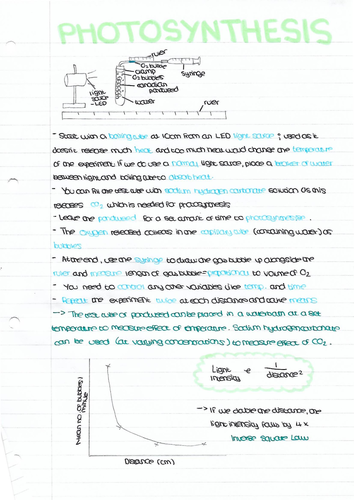 PHOTOSYNTHESIS
ruler
O₂ bubble
clamp
O₂ bubbles
canadian
pondweed
syringe
light
source
- LED
water
ruler
- Start with a boiling tube at 10cm from an LED light source; used as it
doesn't release much heat and too much heat would change the temperature
of the experiment. If we do use a normal light source, place a beaker of water
between light and boiling tube to absorb heat.
- You can fill the test tube with sodium hydrogen carbonate solution as this
releases CO₂ which is needed for photosynthesis
- Leave the pondweed for a set amount of time to photosynthesise.
- The oxygen released collects in the capillary tube (containing water) as
bubbles
- At the end, use the syringe to draw the gas bubble up alongside the
ruler and measure length of gas bubble = proportional to volume of O₂
- You need to control any other variables like temp. and time
- Repeat the experiment twice at each distance and calc means
—> The test tube of pondweed can be placed in a waterbath at a set
temperature to measure effect of temperature. Sodium hydrogencarbonate
can be used (at varying concentrations) to measure effect of CO₂.
Light
intensity
α
1
distance²
—> If we double the distance, the
light intensity falls by 4x
Inverse Square Law
Mean no. of bubbles/
minute
Distance (cm)